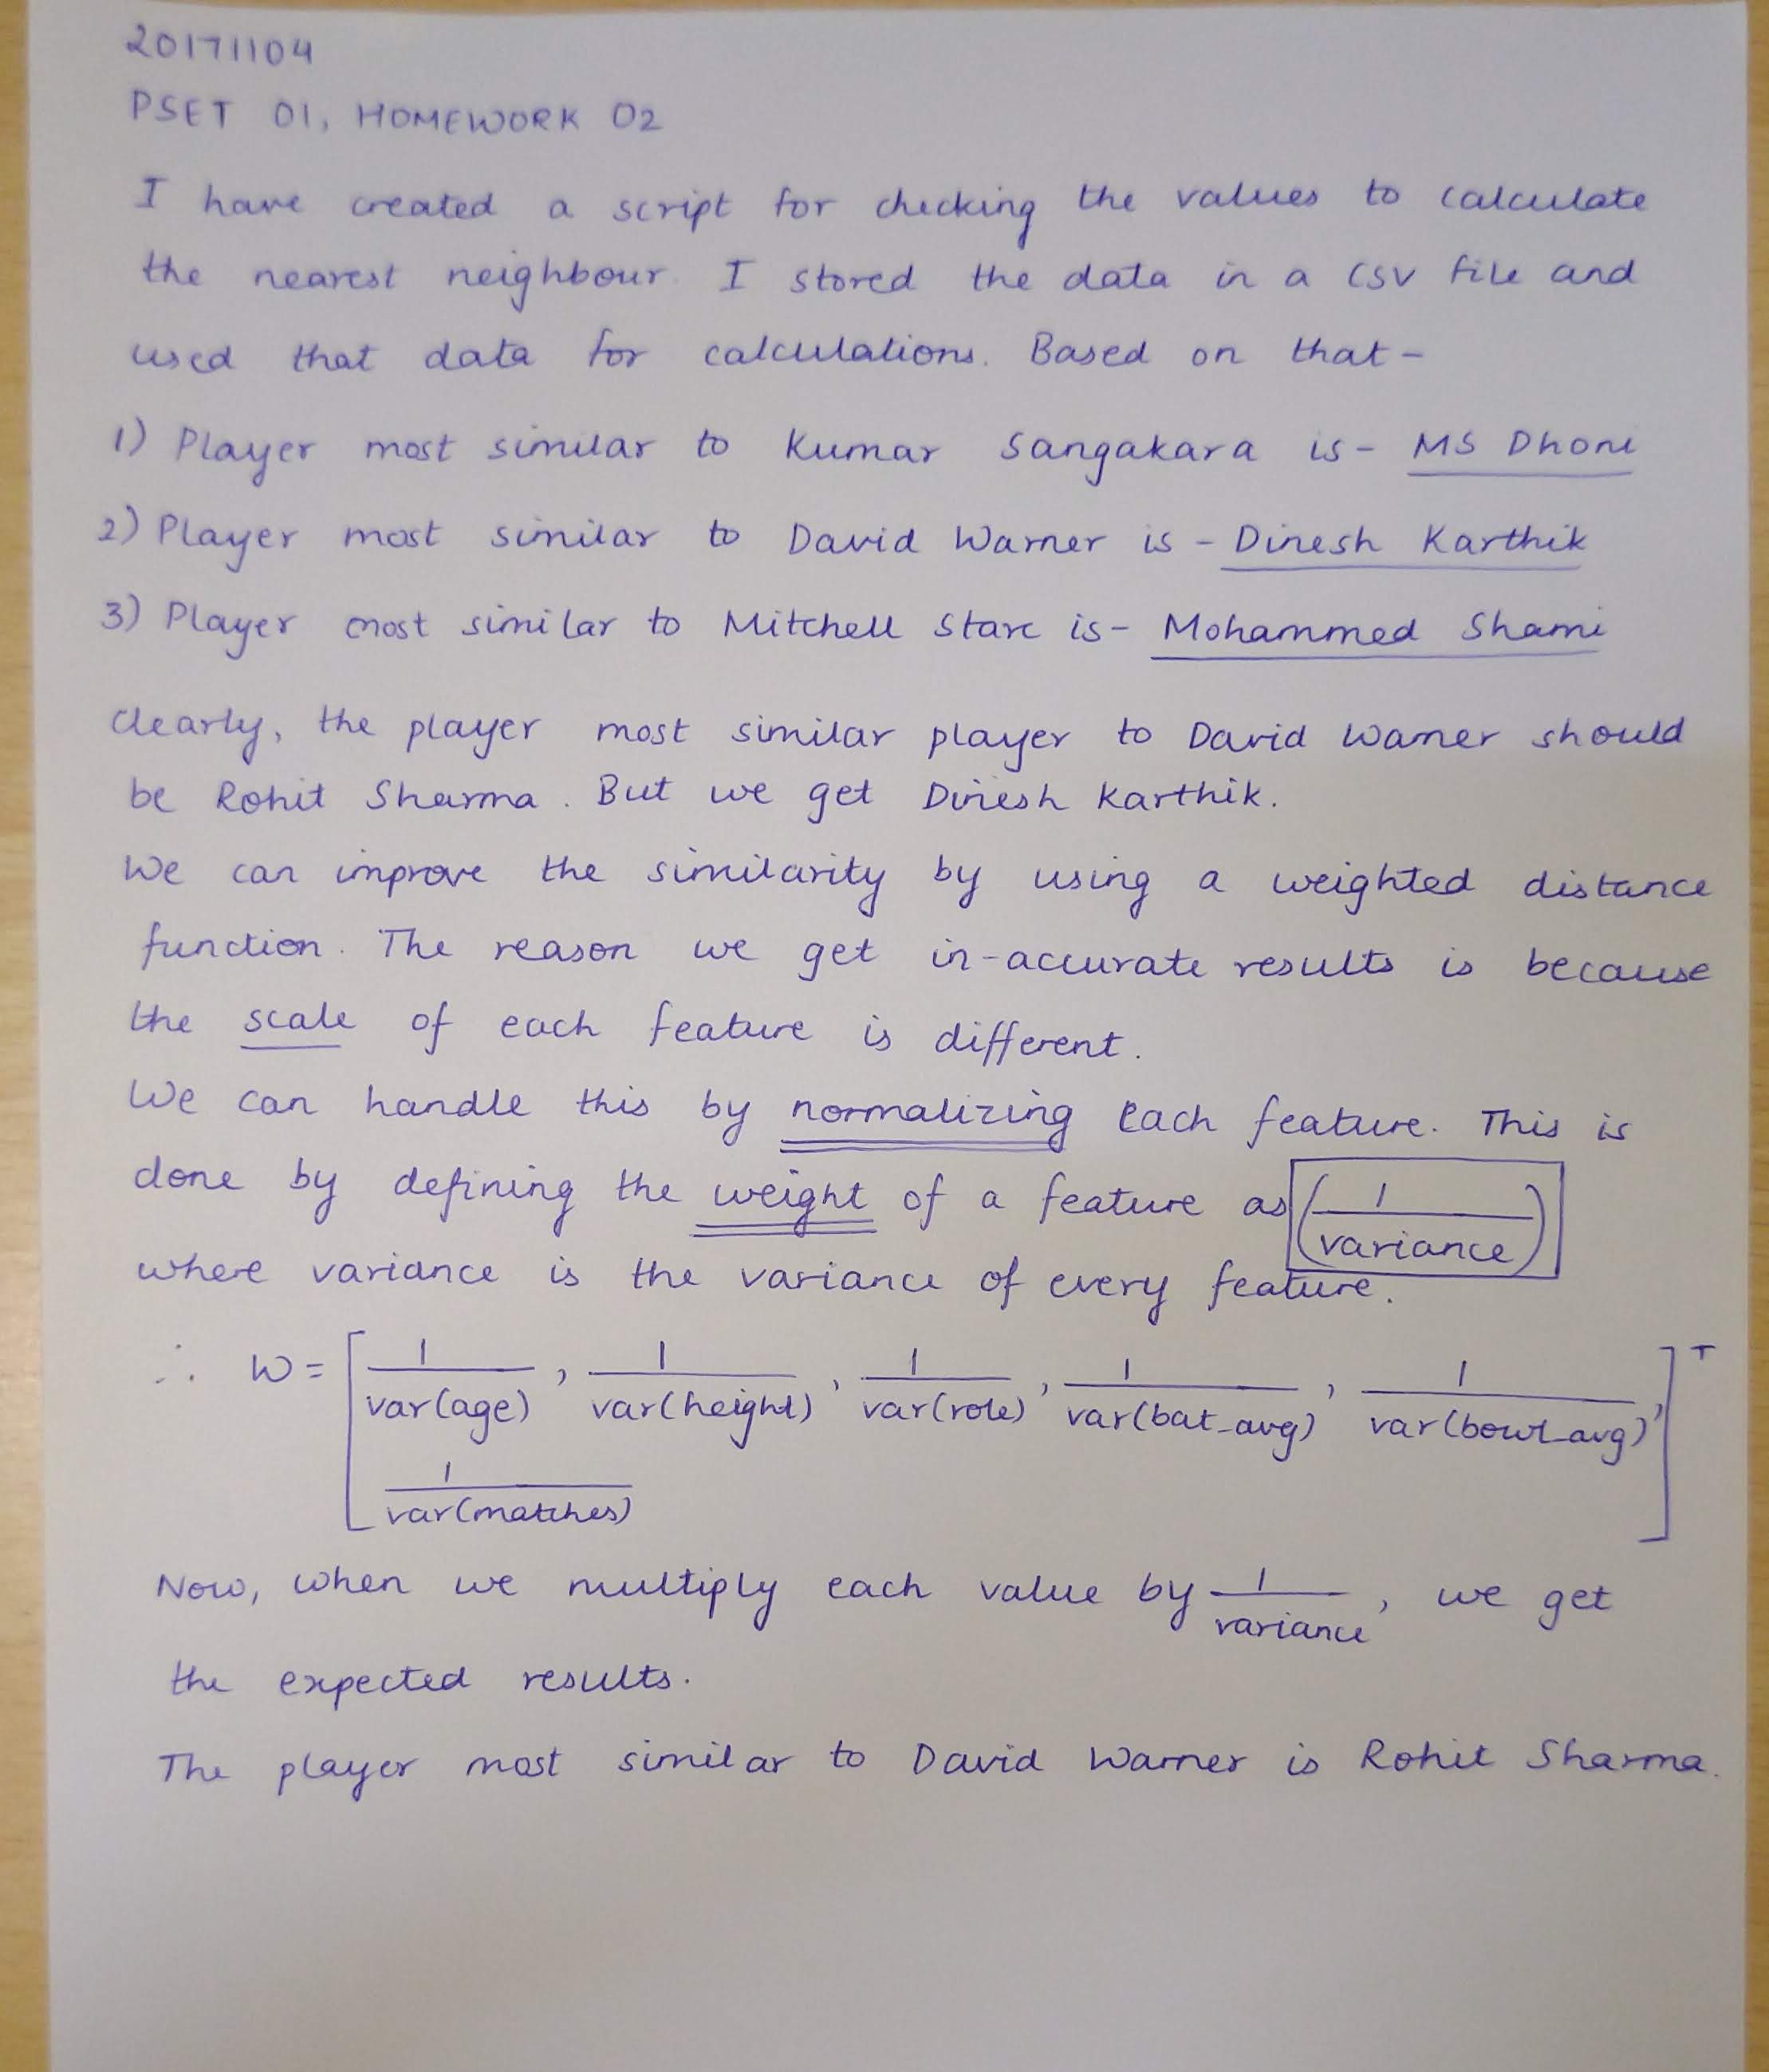 20171104
PSET 01, HOMEWORK 02
I have created a script for checking the values to calculate
the nearest neighbour. I stored the data in a CSV file and
used that data for calculations. Based on that -
1) Player most similar to Kumar Sangakara is - MS Dhoni
2) Player most similar to David Warner is - Dinesh Karthik
3) Player most similar to Mitchell Starc is - Mohammed Shami
Clearly, the player most similar player to David Warner should
be Rohit Sharma. But we get Dinesh Karthik.
We can improve the similarity by using a weighted distance
function. The reason we get in-accurate results is because
the scale of each feature is different.
We can handle this by normalizing each feature. This is
done by defining the weight of a feature as (1/variance)
where variance is the variance of every feature.
∴ W = [1/var(age), 1/var(height), 1/var(role), 1/var(bat_avg), 1/var(bowl_avg),
1/var(matches)]ᵀ
Now, when we multiply each value by 1/variance, we get
the expected results.
The player most similar to David Warner is Rohit Sharma.